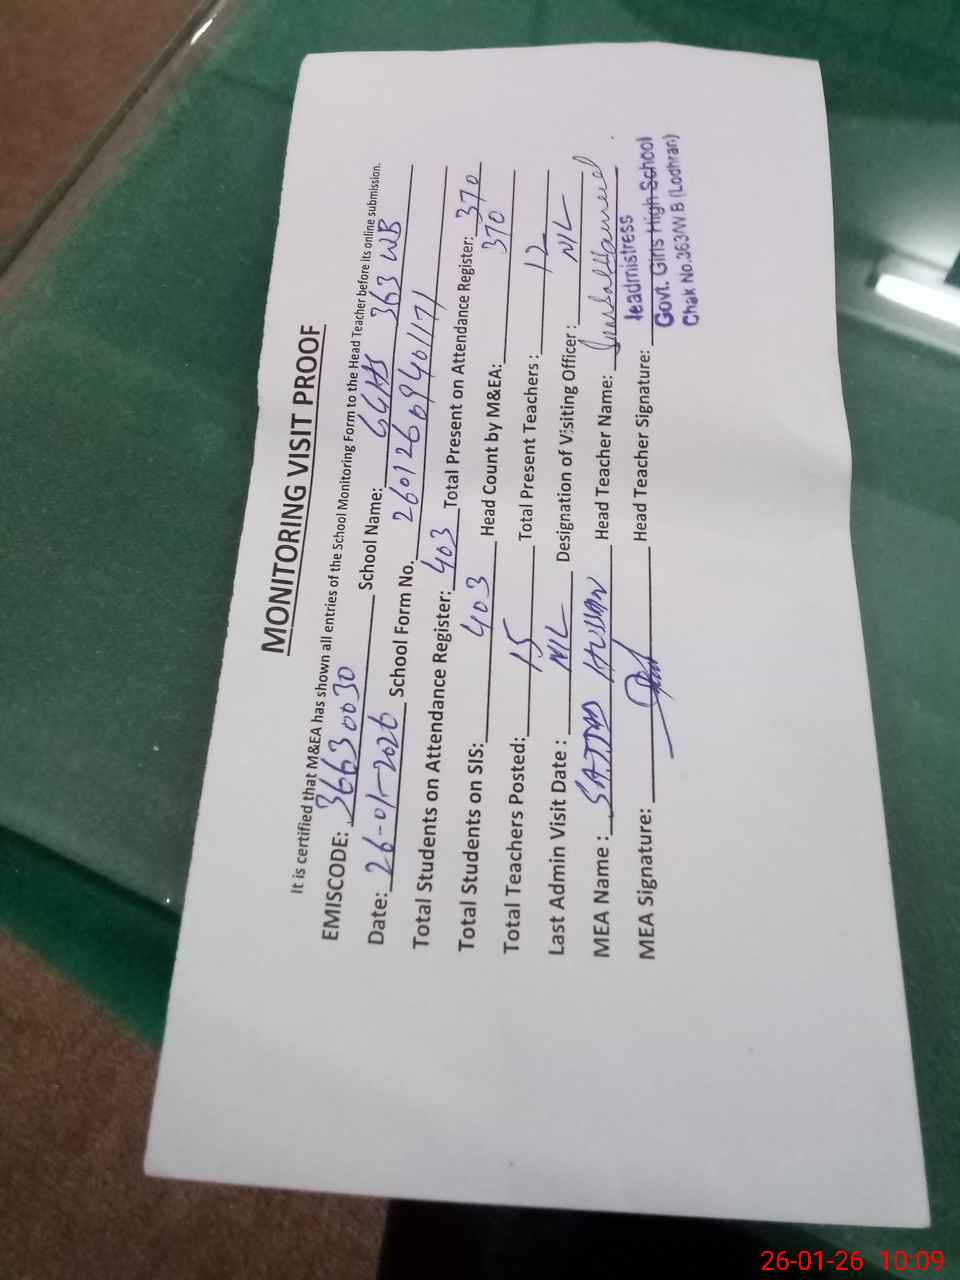 MONITORING VISIT PROOF
It is certified that M&EA has shown all entries of the School Monitoring Form to the Head Teacher before its online submission.
EMISCODE: 36630030 School Name: GGHS 363 WB
Date: 26-01-2026 School Form No. 26012609401171
Total Students on Attendance Register: 403 Total Present on Attendance Register: 370
Total Students on SIS: 403 Head Count by M&EA: 370
Total Teachers Posted: 15 Total Present Teachers: 12
Last Admin Visit Date : NIL Designation of Visiting Officer : NIL
MEA Name : SAJJAD HUSSAIN Head Teacher Name:
MEA Signature: Head Teacher Signature:
Headmistress
Govt. Girls High School
Chak No.363/W.B (Lodhran)
26-01-26 10:09